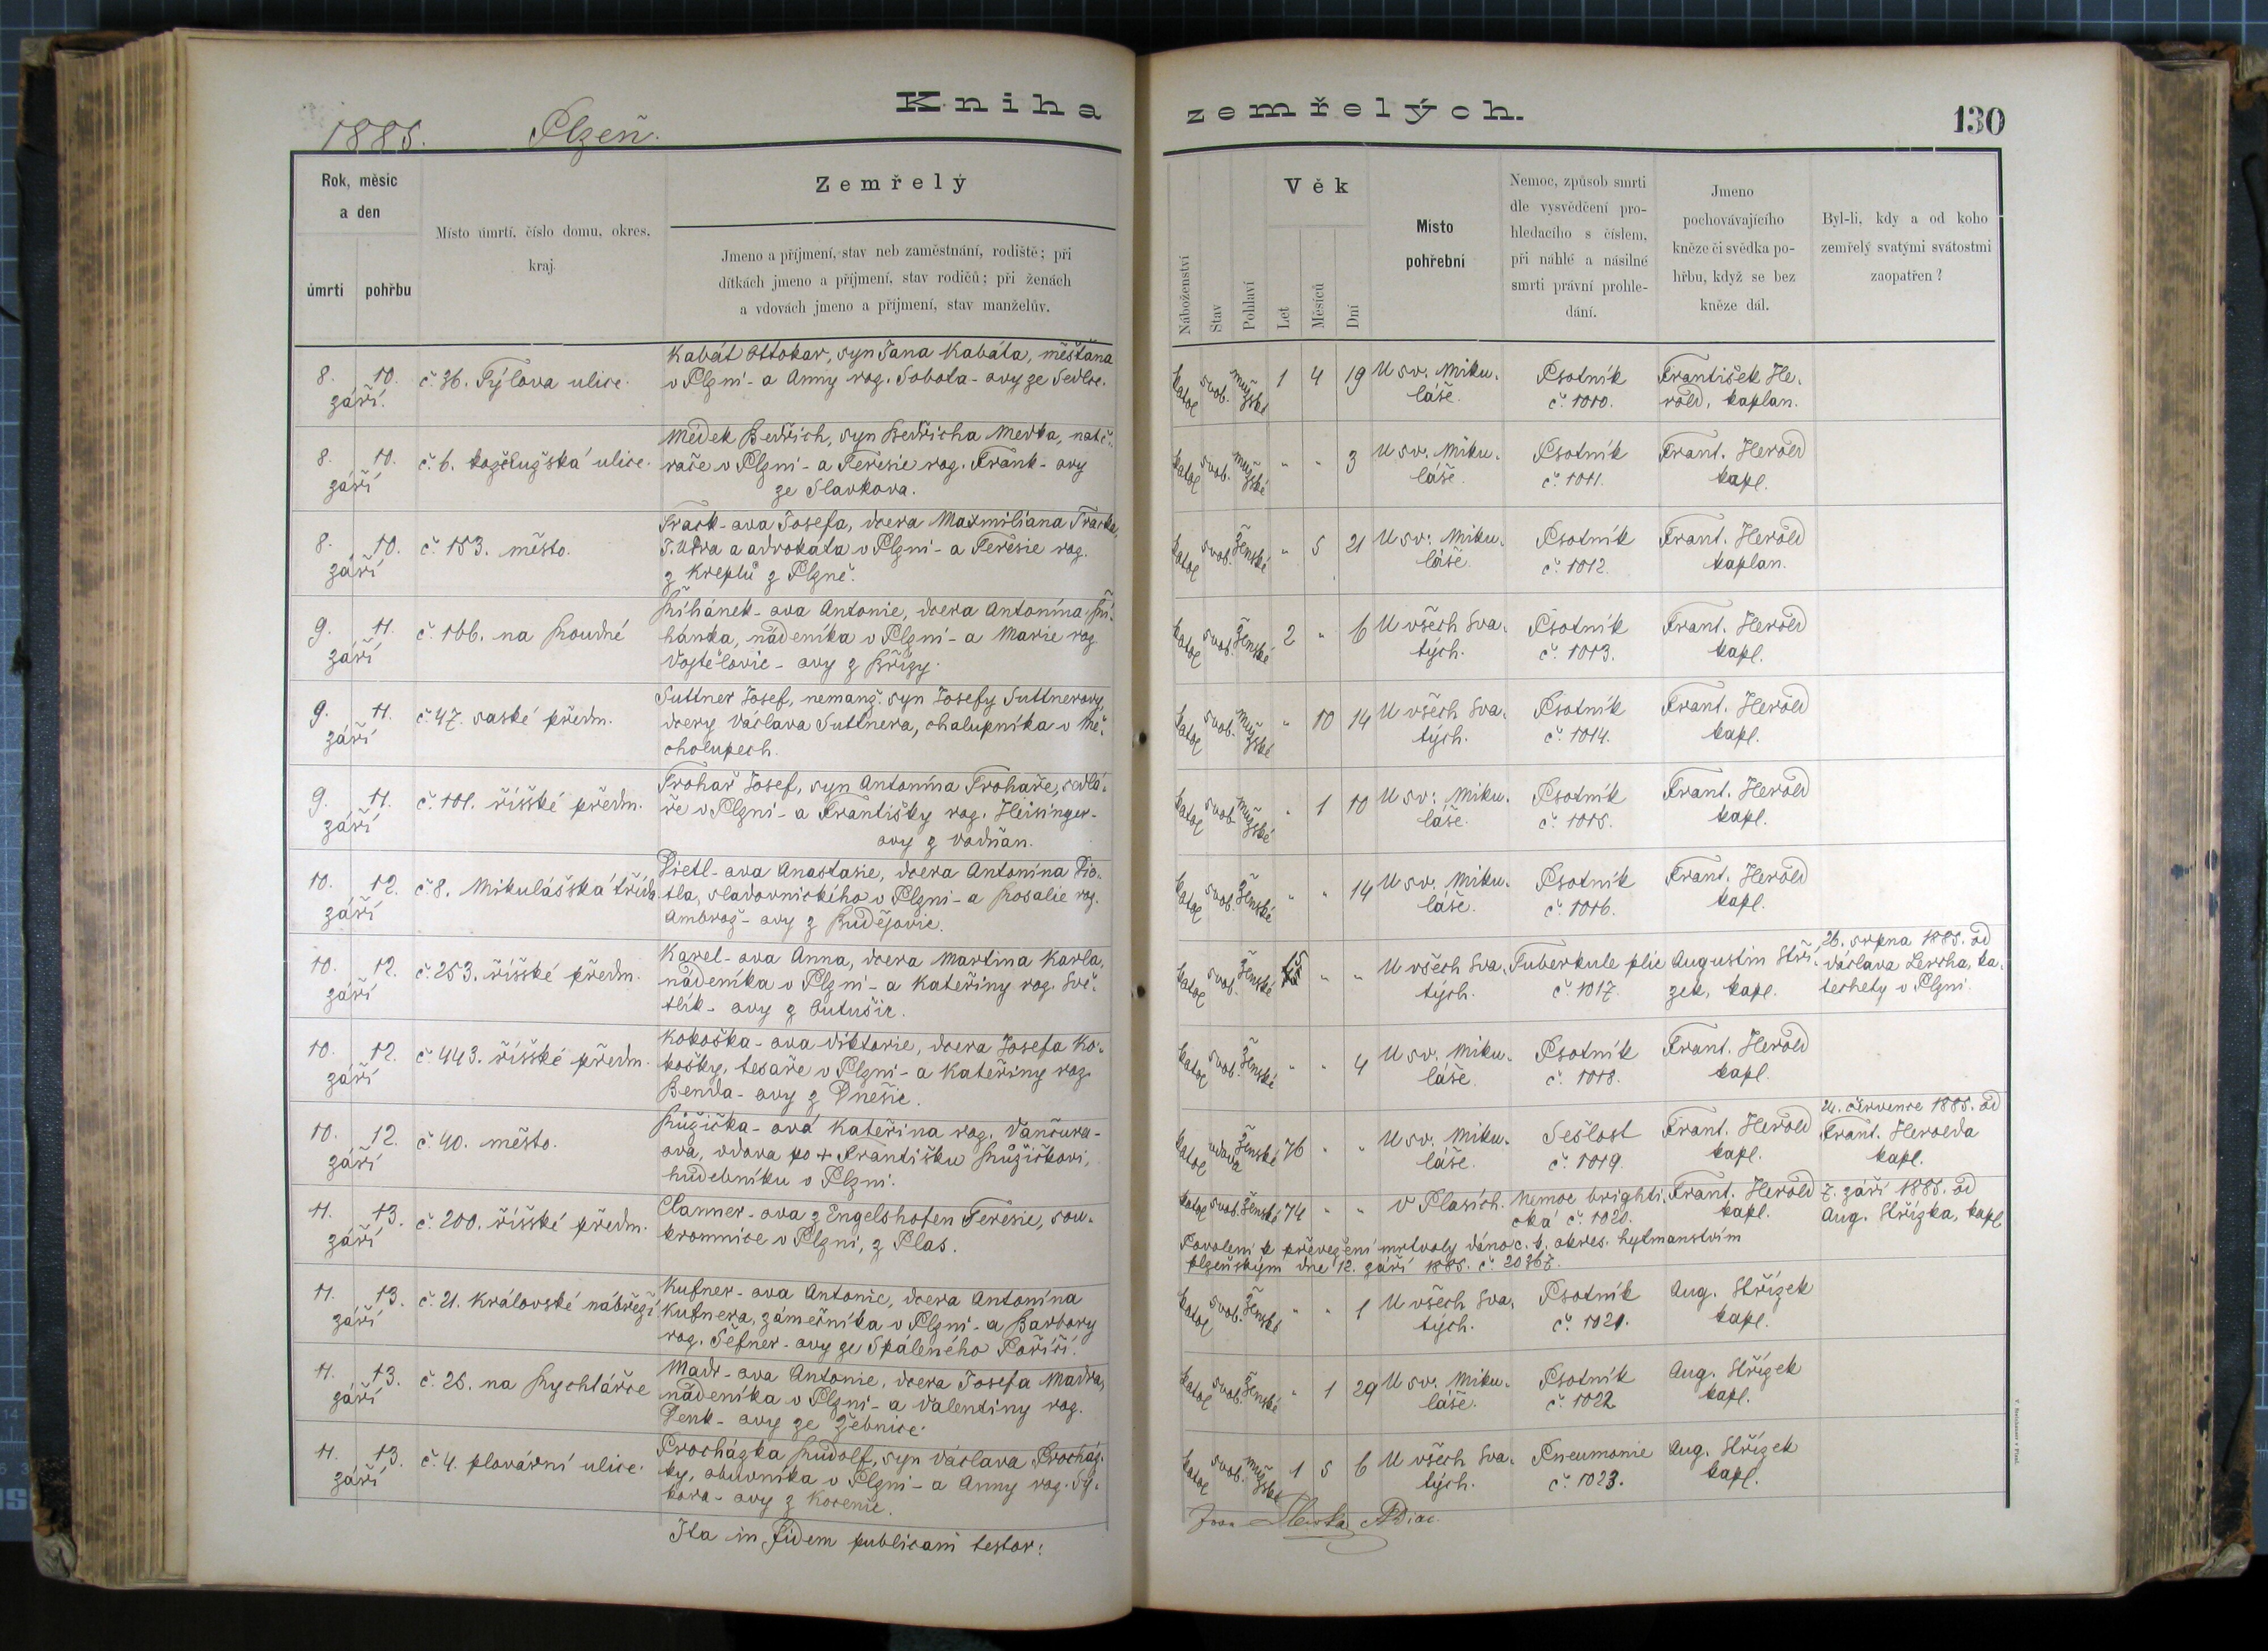 Kniha
1885. Plzeň.
Rok, měsíc
a den
úmrtí pohřbu
Místo úmrtí, číslo domu, okres,
kraj.
Zemřelý
Jmeno a příjmení, stav neb zaměstnání, rodiště; při
dítkách jmeno a příjmení, stav rodičů; při ženách
a vdovách jmeno a příjmení, stav manželův.
8. 10.
září.
č. 36. Týlova ulice.
Kabát Ottokar, syn Jana Kabáta, měšťana
v Plzni - a Anny roz. Sobota-ovy ze Sedlce.
8. 10.
září
č. 6. koželužská ulice.
Médek Bedřich, syn Bedřicha Medka, natě-
rače v Plzni - a Teresie roz. Frank-ovy
ze Slavkova.
8. 10.
září
č. 153. město.
Track-ova Josefa, dcera Maxmiliana Tracka,
J.UDra a advokáta v Plzni - a Terésie roz.
z Kreplů z Plzně.
9. 11.
září
č. 166. na Roudné
Říhánek-ova Antonie, dcera Antonína Ří-
hánka, nádeníka v Plzni - a Marie roz.
Vojtělovic-ovy z Břízy.
9. 11.
září
č. 47. saské předm.
Suttner Josef, nemanž. syn Josefy Suttnerovy,
dcery Václava Suttnera, chalupníka v Mě-
cholupech.
9. 11.
září
č. 101. říšské předm.
Trohař Josef, syn Antonína Trohaře, sedlá-
ře v Plzni - a Františky roz. Heisinger-
ovy z Vodňan.
10. 12.
září
č. 8. Mikulášská třída
Dietl-ova Anastasie, dcera Antonína Die-
tla, sladovnického v Plzni - a Rosalie roz.
Ambrož-ovy z Budějovic.
10. 12.
září
č. 253. říšské předm.
Karel-ova Anna, dcera Martina Karla,
nádeníka v Plzni - a Kateřiny roz. Svě-
tlík-ovy z Outušic.
10. 12.
září
č. 443. říšské předm.
Kokoška-ova Viktorie, dcera Josefa Ko-
košky, tesaře v Plzni - a Kateřiny roz.
Benda-ovy z Dnešic.
10. 12.
září
č. 40. město.
Růžička-ová Kateřina roz. Vančura-
ova, vdova po + Františku Růžičkovi,
hudebníku v Plzni.
11. 13.
září
č. 200. říšské předm.
Clanner-ova z Engelshofen Terésie, sou-
kromnice v Plzni, z Plas.
11. 13.
září
č. 21. Královské nábřeží
Kufner-ova Antonie, dcera Antonína
Kufnera, zámečníka v Plzni - a Barbory
roz. Šefner-ovy ze Spáleného Poříčí.
11. 13.
září
č. 25. na Rychtářce
Madr-ova Antonie, dcera Josefa Madra,
nádeníka v Plzni - a Valentiny roz.
Denk-ovy ze Žebnice.
11. 13.
září
č. 4. plovární ulice.
Procházka Rudolf, syn Václava Procház-
ky, obuvníka v Plzni - a Anny roz. Sý-
kora-ovy z Korenic.
Ita in fidem publicam testor:
zemřelých.
130
Náboženství
Stav
Pohlaví
Věk
Let
Měsíců
Dní
Místo
pohřební
Nemoc, způsob smrti
dle vysvědčení pro-
hledacího s číslem,
při náhlé a násilné
smrti právní prohle-
dání.
Jmeno
pochovávajícího
kněze či svědka po-
hřbu, když se bez
kněze dál.
Byl-li, kdy a od koho
zemřelý svatými svátostmi
zaopatřen?
katol svob. mužské 1 4 19 U sv. Miku- Psotník František He-
láše. č. 1010. rold, kaplan.
katol svob. mužské " " 3 U sv. Miku- Psotník Frant. Herold
láše. č. 1011. kapl.
katol svob. ženské " 5 21 U sv. Miku- Psotník Frant. Herold
láše. č. 1012. kaplan.
katol svob. ženské 2 " 6 U všech Sva- Psotník Frant. Herold
tých. č. 1013. kapl.
katol svob. mužské " 10 14 U všech Sva- Psotník Frant. Herold
tých. č. 1014. kapl.
katol svob. mužské " 1 10 U sv. Miku- Psotník Frant. Herold
láše. č. 1015. kapl.
katol svob. ženské " " 14 U sv. Miku- Psotník Frant. Herold
láše. č. 1016. kapl.
katol svob. ženské 15 " " U všech Sva- Tuberkule plic Augustin Stří-
tých. č. 1017. zek, kapl.
26. srpna 1885. od
Václava Lercha, ka-
techety v Plzni.
katol svob. ženské " " 4 U sv. Miku- Psotník Frant. Herold
láše. č. 1018. kapl.
katol vdova ženské 76 " " U sv. Miku- Sešlost Frant. Herold
láše. č. 1019. kapl.
24. července 1885. od
Frant. Herolda
kapl.
katol svob. ženské 74 " " V Plasích. Nemoc brighti- Frant. Herold 7. září 1885. od
cká č. 1020. kapl. Aug. Střízka, kapl.
Povolení k převezení mrtvoly dáno c. k. okres. hejtmanstvím
plzeňským dne 12. září 1885. č. 20367.
katol svob. ženské " " 1 U všech Sva- Psotník Aug. Střízek
tých. č. 1021. kapl.
katol svob. ženské " 1 29 U sv. Miku- Psotník Aug. Střízek
láše. č. 1022 kapl.
katol svob. mužské 1 5 6 U všech Sva- Pneumonie Aug. Střízek
tých. č. 1023. kapl.